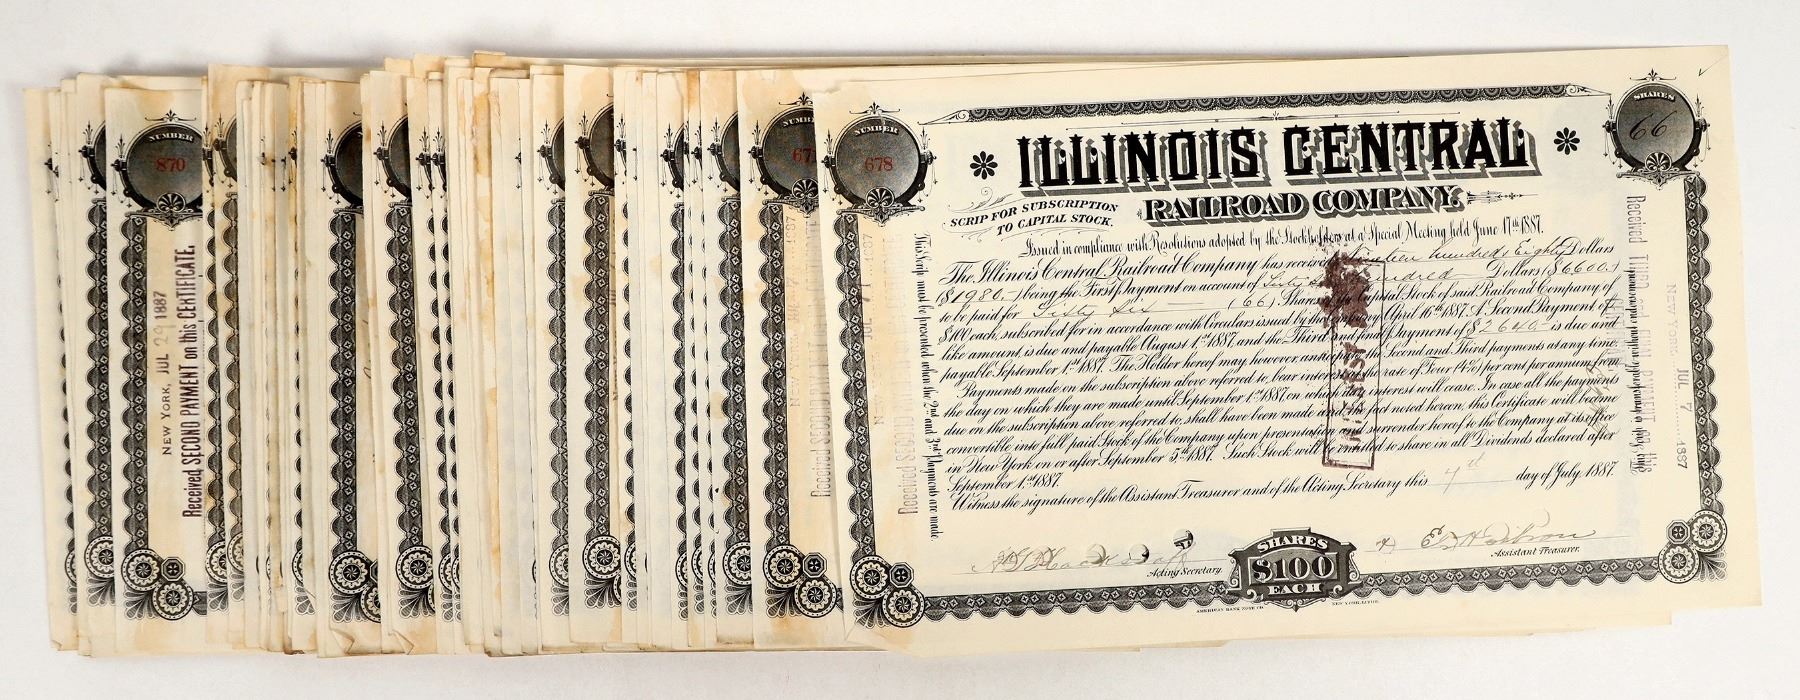 NUMBER
870
NEW YORK, JUL 29 1887
Received SECOND PAYMENT on this CERTIFICATE.
NUMB
67
NEW YORK
1887
Received SECOND
NUMBER
678
SHARES
66
ILLINOIS CENTRAL
RAILROAD COMPANY.
SCRIP FOR SUBSCRIPTION
TO CAPITAL STOCK.
Issued in compliance with Resolutions adopted by the Stockholders at a Special Meeting held June 17th 1887.
The Illinois Central Railroad Company has received Nineteen hundred & Eighty Dollars
($1980.) being the First Payment on account of Sixty Six hundred Dollars ($6600.)
to be paid for Sixty Six (66) Shares in the Capital Stock of said Railroad Company of
$100 each, subscribed for in accordance with Circulars issued by the Company April 16th 1887. A Second Payment of
like amount, is due and payable August 1st 1887, and the Third and final Payment of $2640 is due and
payable September 1st 1887. The Holder hereof may however, anticipate the Second and Third payments at any time.
Payments made on the subscription above referred to, bear interest at the rate of Four (4%) per cent per annum from
the day on which they are made until September 1st 1887, on which day interest will cease. In case all the payments
due on the subscription above referred to, shall have been made and the fact noted hereon, this Certificate will become
convertible into full paid Stock of the Company upon presentation and surrender hereof to the Company at its office
in New York on or after September 5th 1887. Such Stock will be entitled to share in all Dividends declared after
September 1st 1887.
Witness the signature of the Assistant Treasurer and of the Acting Secretary this 7th day of July 1887.
This Scrip must be presented when the 2nd and 3rd Payments are made.
Received THIRD and FINAL PAYMENT on this
NEW YORK, JUL 7 1887
Acting Secretary.
Assistant Treasurer.
SHARES
$100
EACH
AMERICAN BANK NOTE CO.
NEW YORK, LITHO.